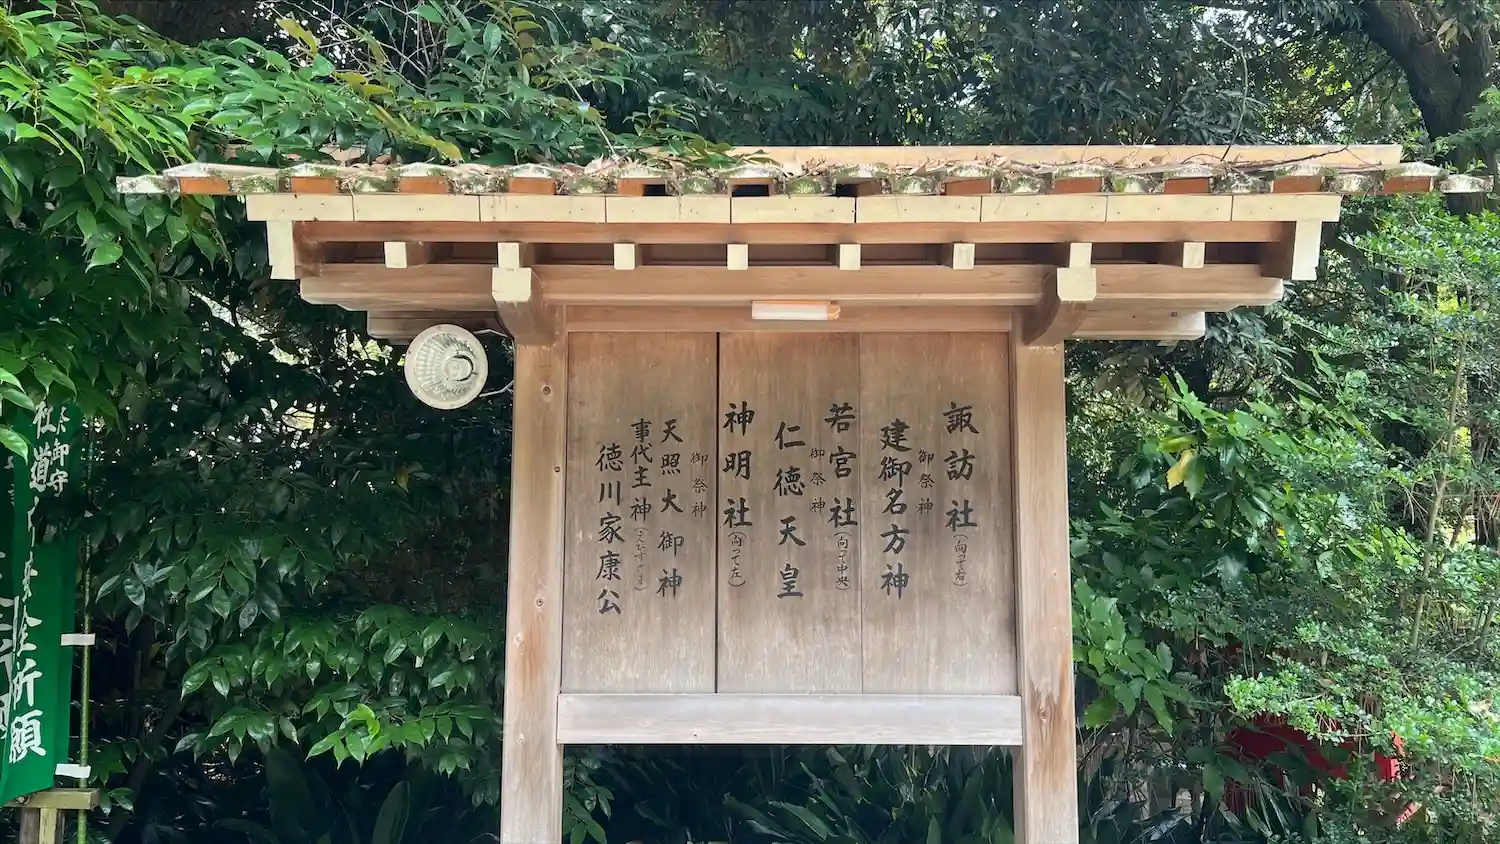 諏訪社(向って右)
御祭神
建御名方神
若宮社(向って中央)
御祭神
仁徳天皇
神明社(向って左)
御祭神
天照大御神
事代主神(えびすさま)
徳川家康公
御守
社道
全祈願